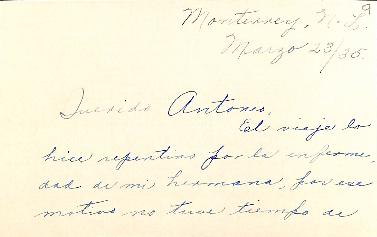 Monterrey, N. L.
Marzo 23/35.
Querido Antonio,
El viaje lo
hice repentino por la enferme-
dad de mi hermana, por ese
motivo no tuve tiempo de